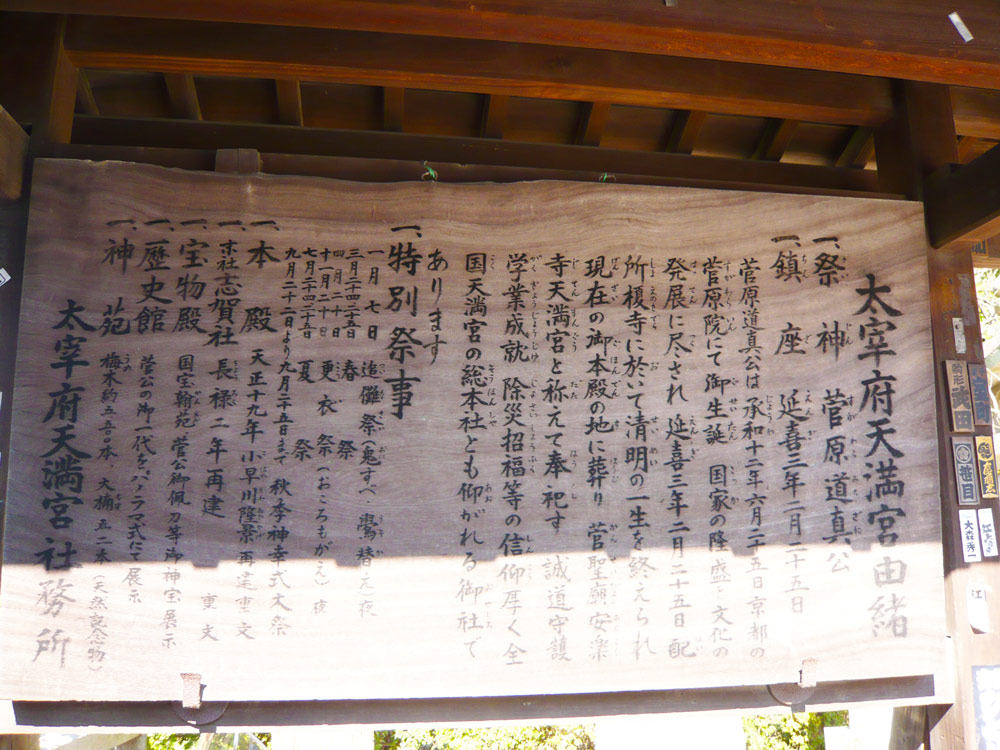 太宰府天満宮由緒
一、祭神 菅原道真公
一、鎮座 延喜三年二月二十五日
菅原道真公は承和十二年六月二十五日京都の
菅原院にて御生誕 国家の隆盛、文化の
発展に尽され 延喜三年二月二十五日配
所榎寺に於いて清明の一生を終えられ
現在の御本殿の地に葬り 菅聖廟安楽
寺天満宮と称えて奉祀す 誠道守護
学業成就 除災招福等の信仰厚く全
国天満宮の総本社とも仰がれる御社で
あります
一、特別祭事
一月七日 追儺祭(鬼すべ 鷽替え)夜
三月二十四二十五日 春祭
四月二十日 更衣祭(おころもがえ)夜
十一月二十日
七月二十四二十五日 夏祭
九月二十二日より九月二十五日まで 秋季神幸式大祭
一、本殿 天正十九年小早川隆景再建 重文
一、末社志賀社 長禄二年再建 重文
一、宝物殿 国宝翰苑 菅公御佩刀等御神宝展示
一、歴史館 菅公の御一代をパノラマ式にて展示
一、神苑 梅木約五五〇本、大樟五二本(天然記念物)
太宰府天満宮社務所
大森秀一
江